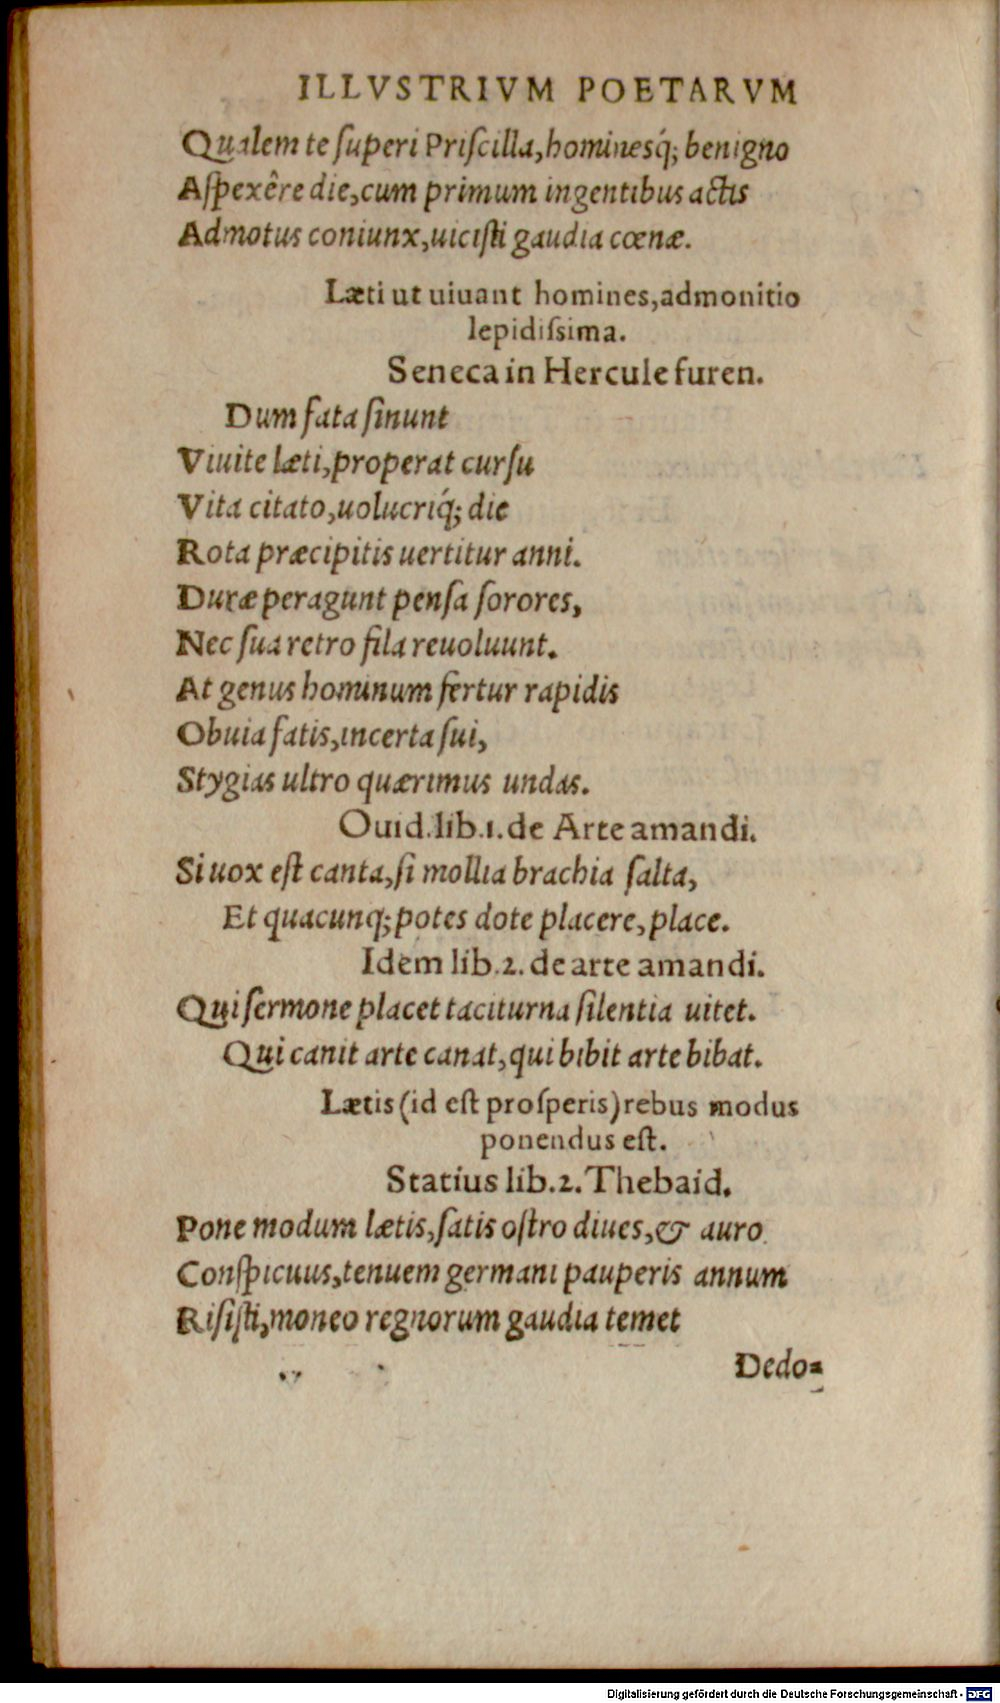 ILLVSTRIVM POETARVM
Qualem te ſuperi Priſcilla, hominesq́; benigno
Aſpexêre die, cum primum ingentibus actis
Admotus coniunx, uiciſti gaudia cœnæ.
Læti ut uiuant homines, admonitio
lepidiſsima.
Seneca in Hercule furen.
Dum fata ſinunt
Viuite læti, properat curſu
Vita citato, uolucriq́; die
Rota præcipitis uertitur anni.
Duræ peragunt penſa ſorores,
Nec ſua retro fila reuoluunt.
At genus hominum fertur rapidis
Obuia fatis, incerta ſui,
Stygias ultro quærimus undas.
Ouid. lib. 1. de Arte amandi.
Si uox eſt canta, ſi mollia brachia ſalta,
Et quacunq; potes dote placere, place.
Idem lib. 2. de arte amandi.
Qui ſermone placet taciturna ſilentia uitet.
Qui canit arte canat, qui bibit arte bibat.
Lætis (id eſt proſperis) rebus modus
ponendus eſt.
Statius lib. 2. Thebaid.
Pone modum lætis, ſatis oſtro diues, & auro
Conſpicuus, tenuem germani pauperis annum
Riſiſti, moneo regnorum gaudia temet
Dedo-
Digitalisierung gefördert durch die Deutsche Forschungsgemeinschaft - DFG